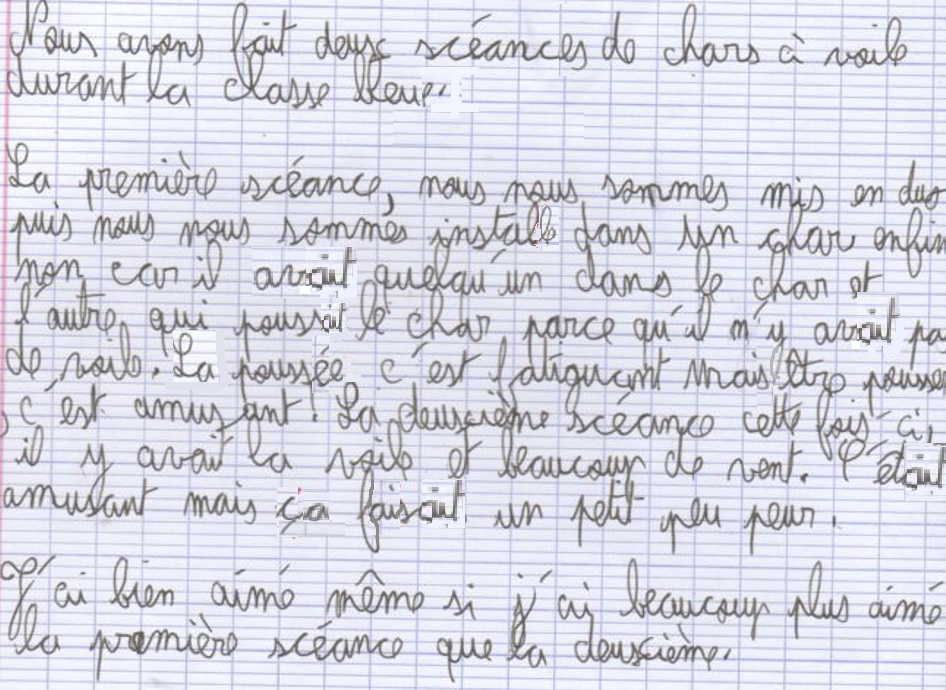 Nous avons fait deux scéances de chars à voile
durant la classe bleue.
La première scéance, nous nous sommes mis en duo
puis nous nous sommes instalé dans un char enfin
non car il avait quelqu'un dans le char et
l'autre qui poussait le char parce qu'il n'y avait pa
de voile. La poussée c'est fatiguant mais être pousser
c'est amusant. La deuxième scéance cette fois ci,
il y avait la voile et beaucoup de vent. C'était
amusant mais ça faisait un petit peu peur.
J'ai bien aimé même si j'ai beaucoup plus aimé
la première scéance que la deuxième.